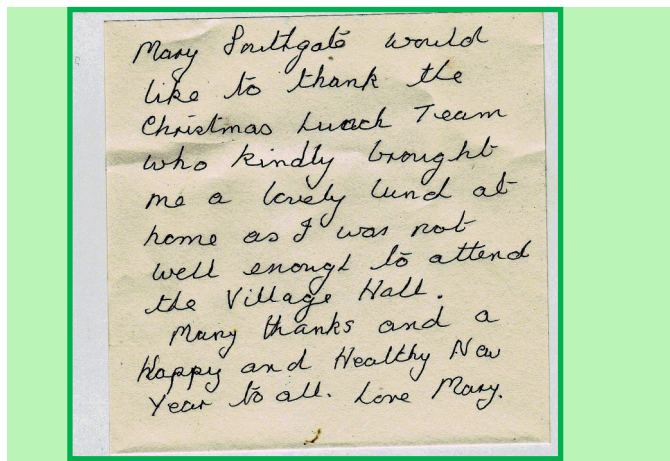 Mary Southgate would
like to thank the
Christmas Lunch Team
who kindly brought
me a lovely lunch at
home as I was not
well enough to attend
the Village Hall.
Many thanks and a
Happy and Healthy New
Year to all. Love Mary.